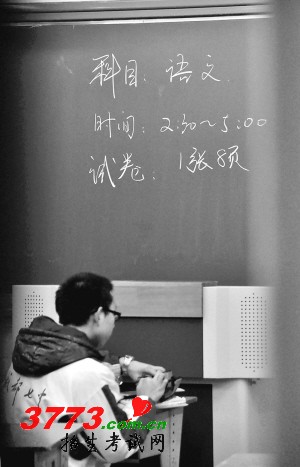 科目：语文
时间：2:30～5:00
试卷：1张8页
3773.com.cn
招生考试网